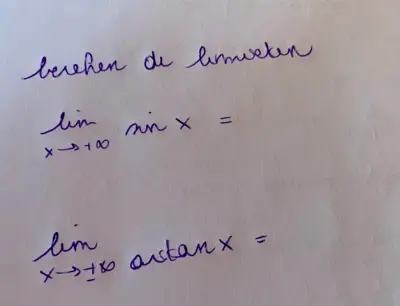 bereken de limieten
lim sin x =
x→+∞
lim arctan x =
x→±∞